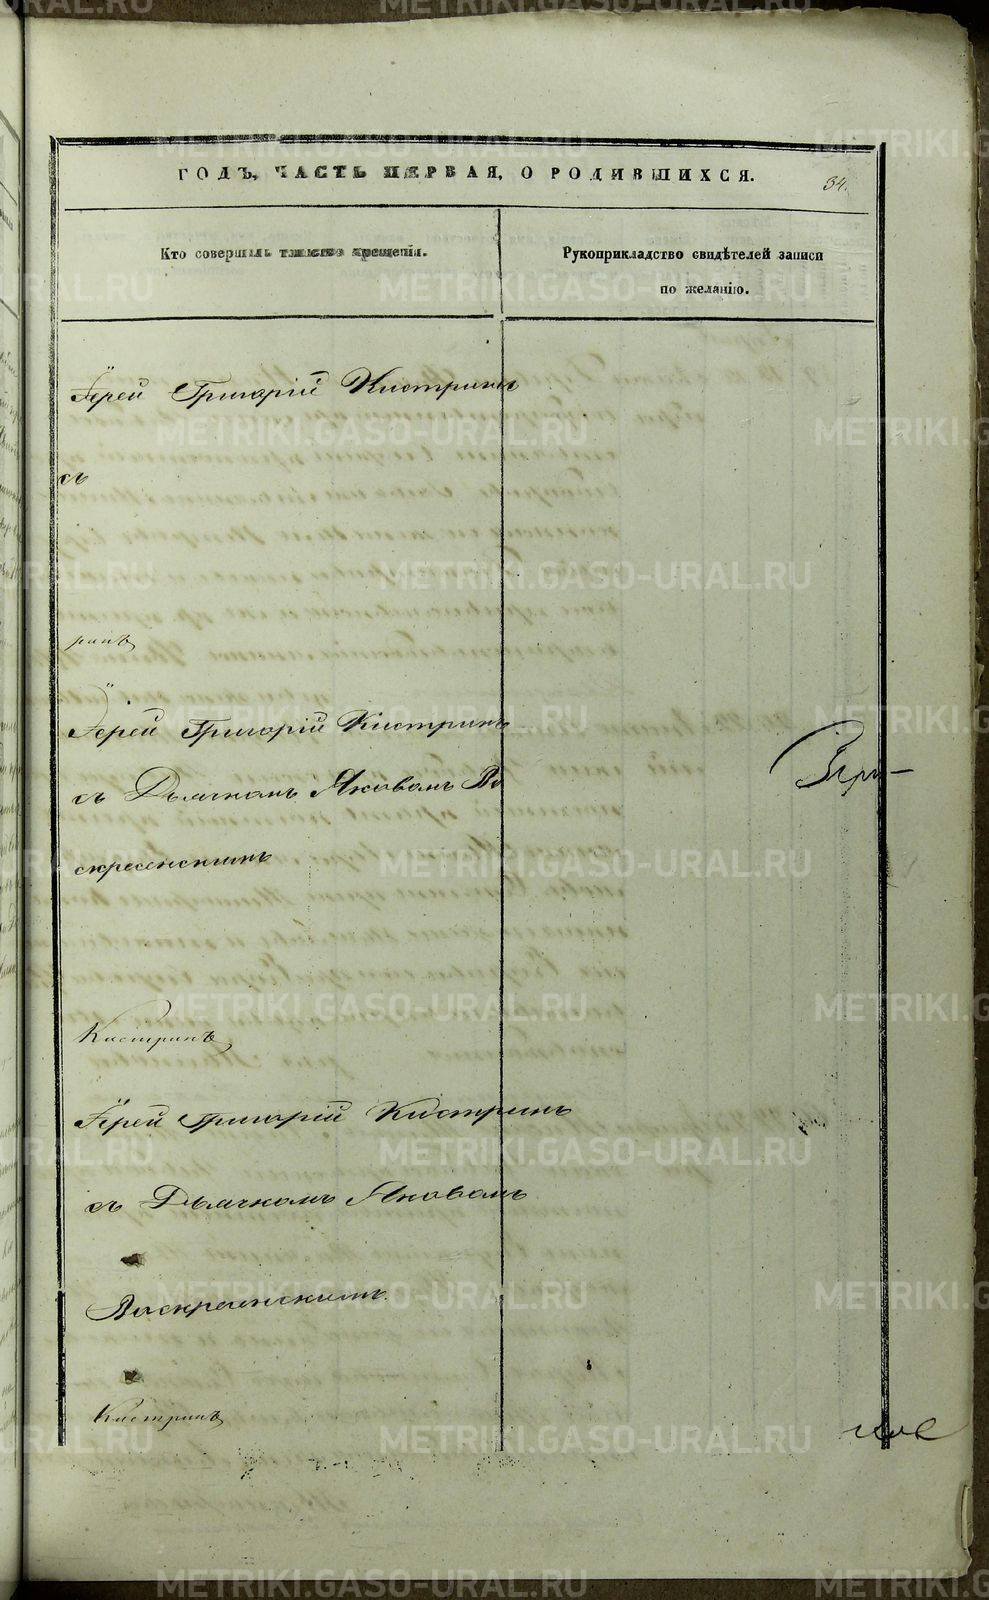 ГОДЪ, ЧАСТЬ ПЕРВАЯ, О РОДИВШИХСЯ.
34.
Кто совершалъ таинство крещенія.
Рукоприкладство свидѣтелей записи
по желанію.
Іерей Григорій Кистринъ
съ
ринъ
Іерей Григорій Кистринъ
съ Дьячкомъ Яковомъ Во
скресенскимъ
Кистринъ
Іерей Григорій Кистринъ
съ Дьячкомъ Яковомъ
Воскресенскимъ
Кистринъ
METRIKI.GASO-URAL.RU